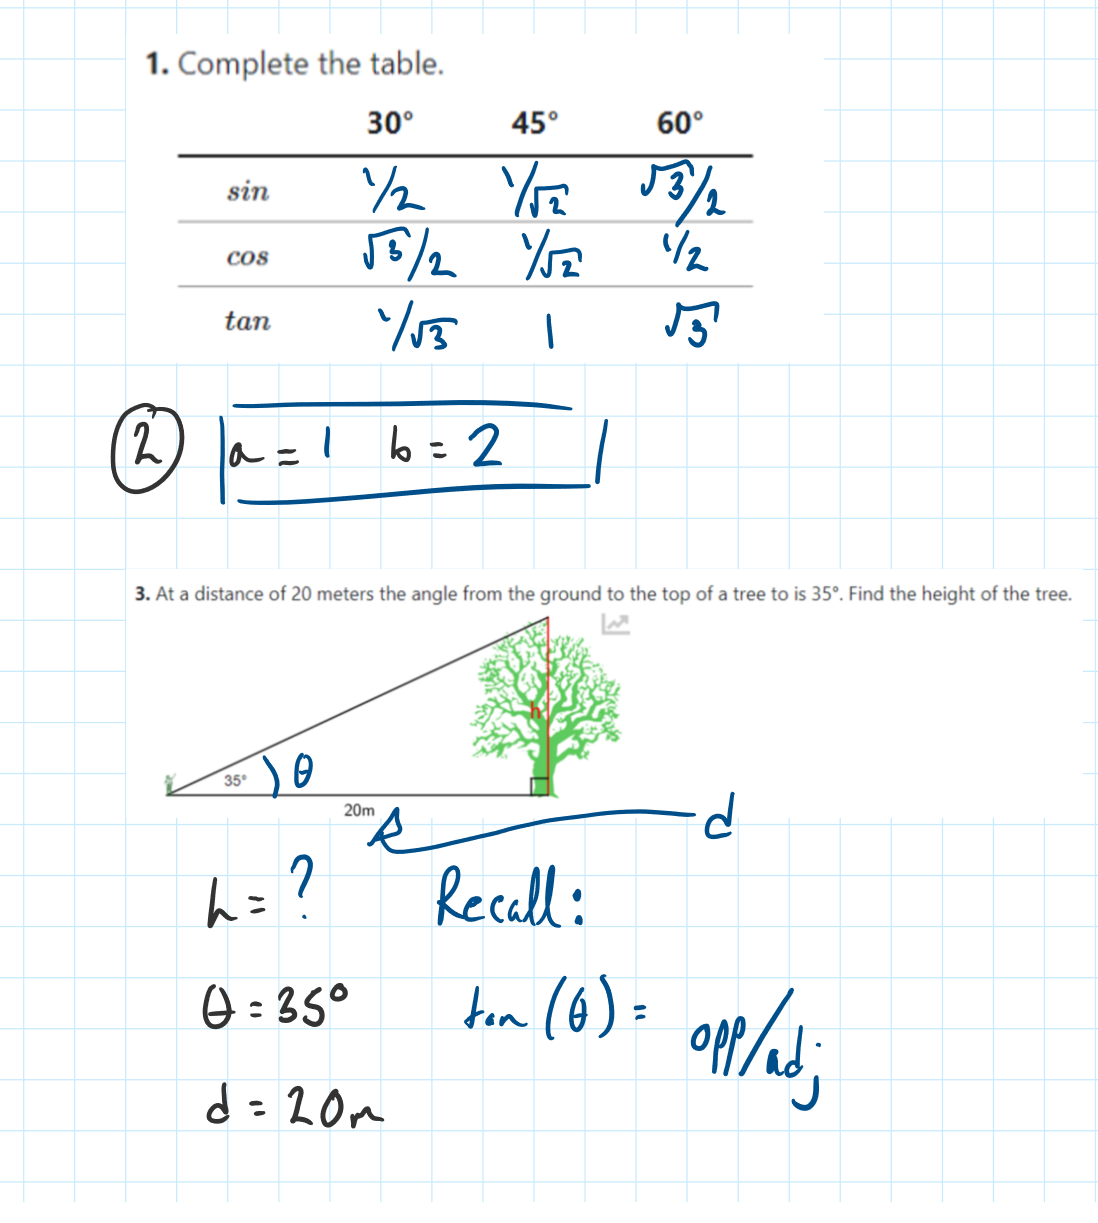 1. Complete the table.
30° 45° 60°
sin 1/2 1/√2 √3/2
cos √3/2 1/√2 1/2
tan 1/√3 1 √3
2 a = 1 b = 2
3. At a distance of 20 meters the angle from the ground to the top of a tree to is 35°. Find the height of the tree.
h
35° θ
20m
d
h = ? Recall:
θ = 35° tan (θ) = opp/adj
d = 20m